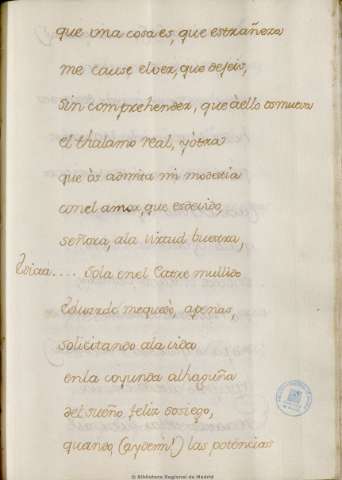 que una cosa es, que estrañeza
me cause el ver, que dejeis,
sin comprehender, que àello os mueva
el thalamo real, y òtra
que òs admita mi modestia
con el amor, que es devido,
señora, ala virtud buestra,
.... Sola en el Catre mullido
Eduardo me quedò, apenas,
solicitando ala vida
en la coyunda alhagueña
del sueño feliz sosiego,
quando, (ày de mi!) las potencias
© Biblioteca Regional de Madrid